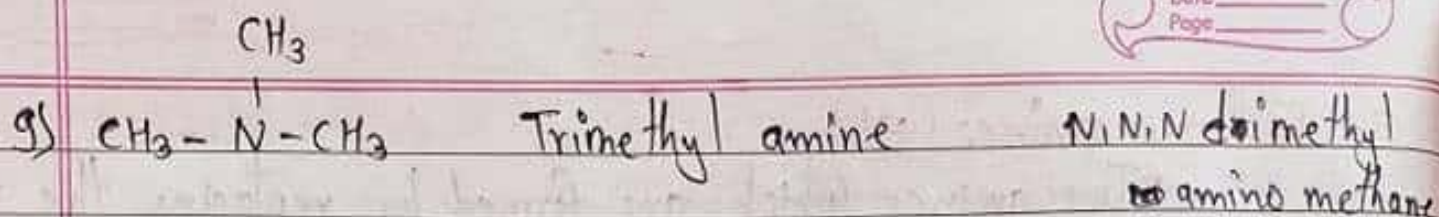 Page
CH3
9) CH3 - N - CH3 Trimethyl amine N,N,N dimethyl
amino methane